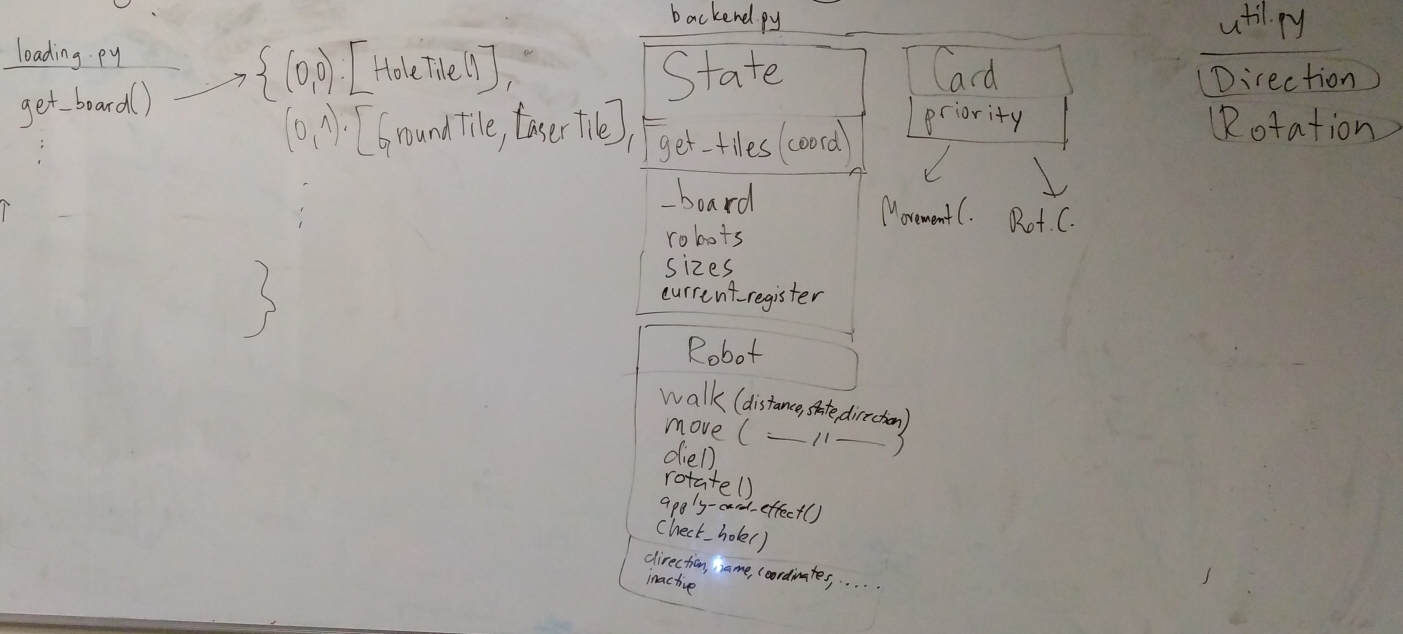 loading.py
get_board()
{ (0,0): [HoleTile()],
(0,1): [GroundTile, LaserTile],
}
backend.py
State
get_tiles(coord)
_board
robots
sizes
current_register
Robot
walk (distance, state, direction)
move ( — 11 — )
die()
rotate()
apply-card-effect()
check_hole()
direction, name, coordinates, .....
inactive
Card
priority
Movement C.
Rot. C.
util.py
Direction
Rotation